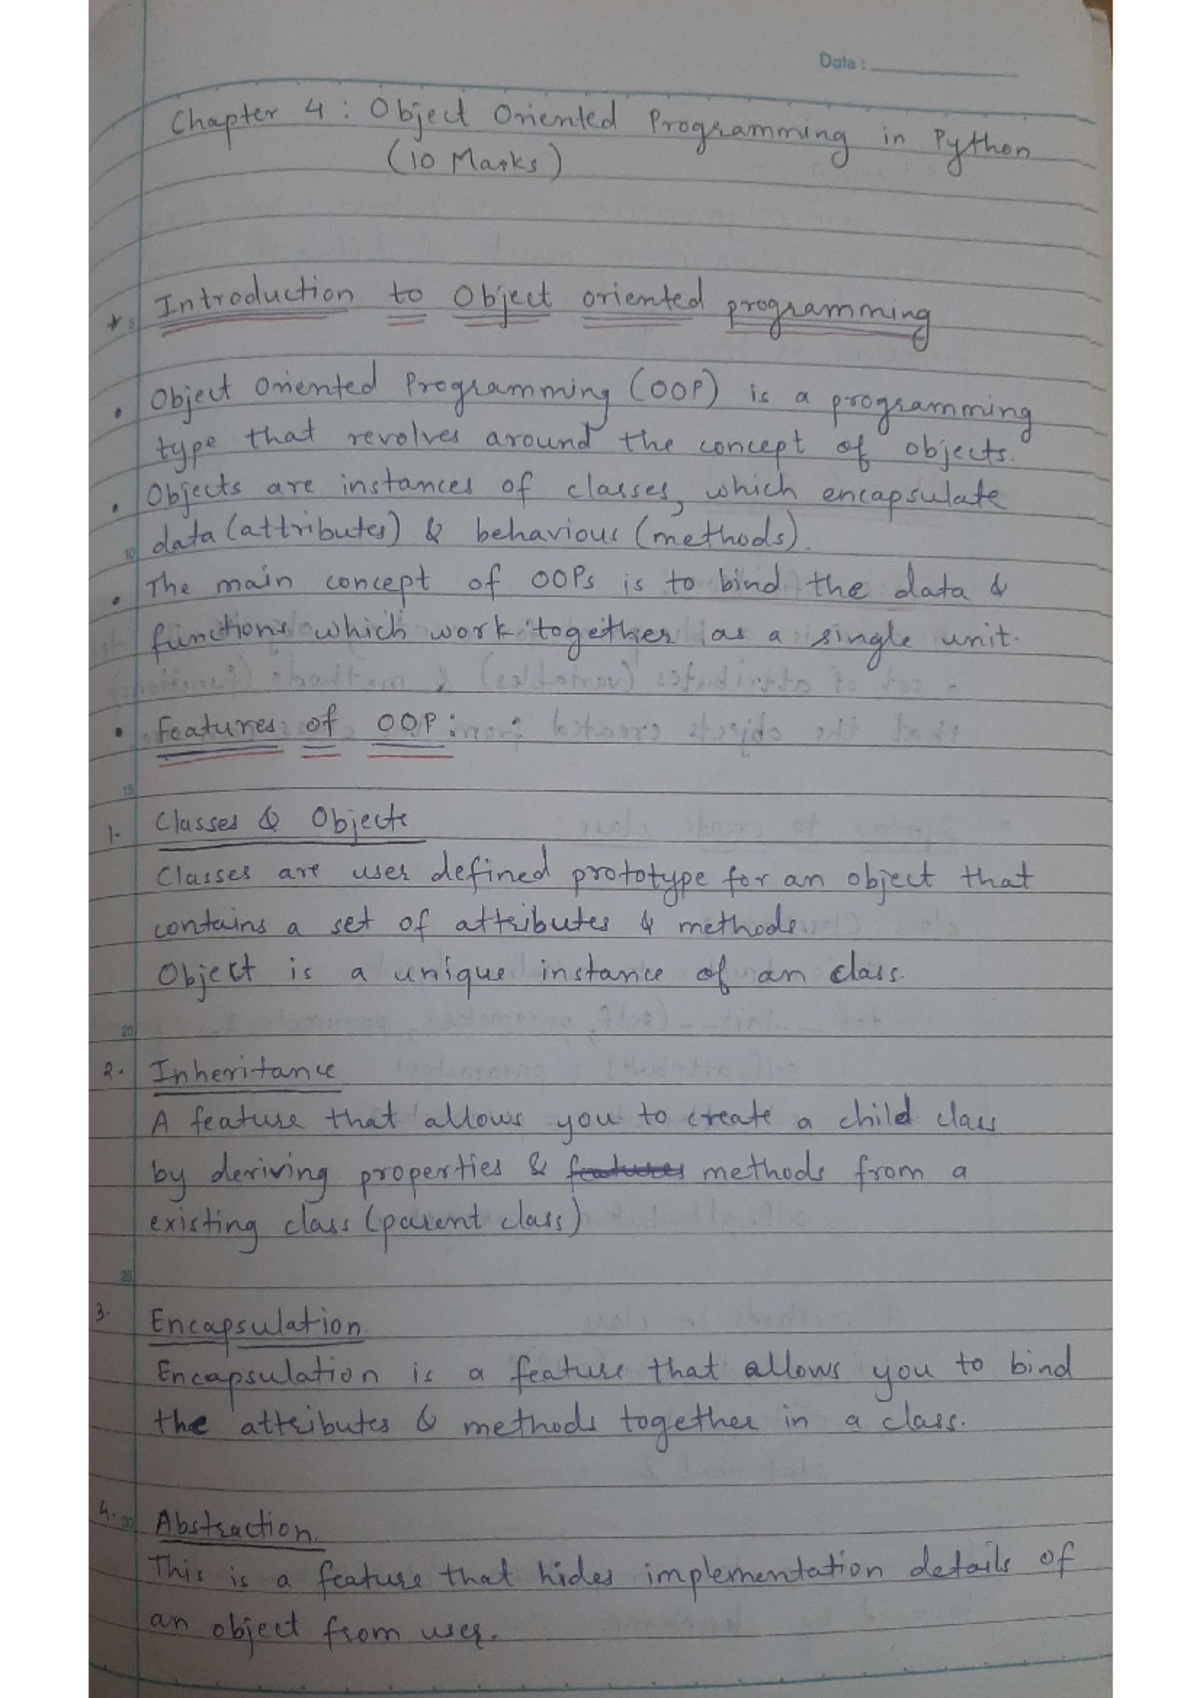 Date :
Chapter 4 : Object Oriented Programming in Python
(10 Marks)
* Introduction to Object oriented programming
• Object Oriented Programming (OOP) is a programming
type that revolves around the concept of objects.
• Objects are instances of classes, which encapsulate
data (attributes) & behaviour (methods).
• The main concept of OOPs is to bind the data &
functions which work together as a single unit.
• Features of OOP :
1. Classes & Objects
Classes are user defined prototype for an object that
contains a set of attributes & methods.
Object is a unique instance of an class.
2. Inheritance
A feature that allows you to create a child class
by deriving properties & features methods from a
existing class (parent class)
3. Encapsulation
Encapsulation is a feature that allows you to bind
the attributes & methods together in a class.
4. Abstraction.
This is a feature that hides implementation details of
an object from user.